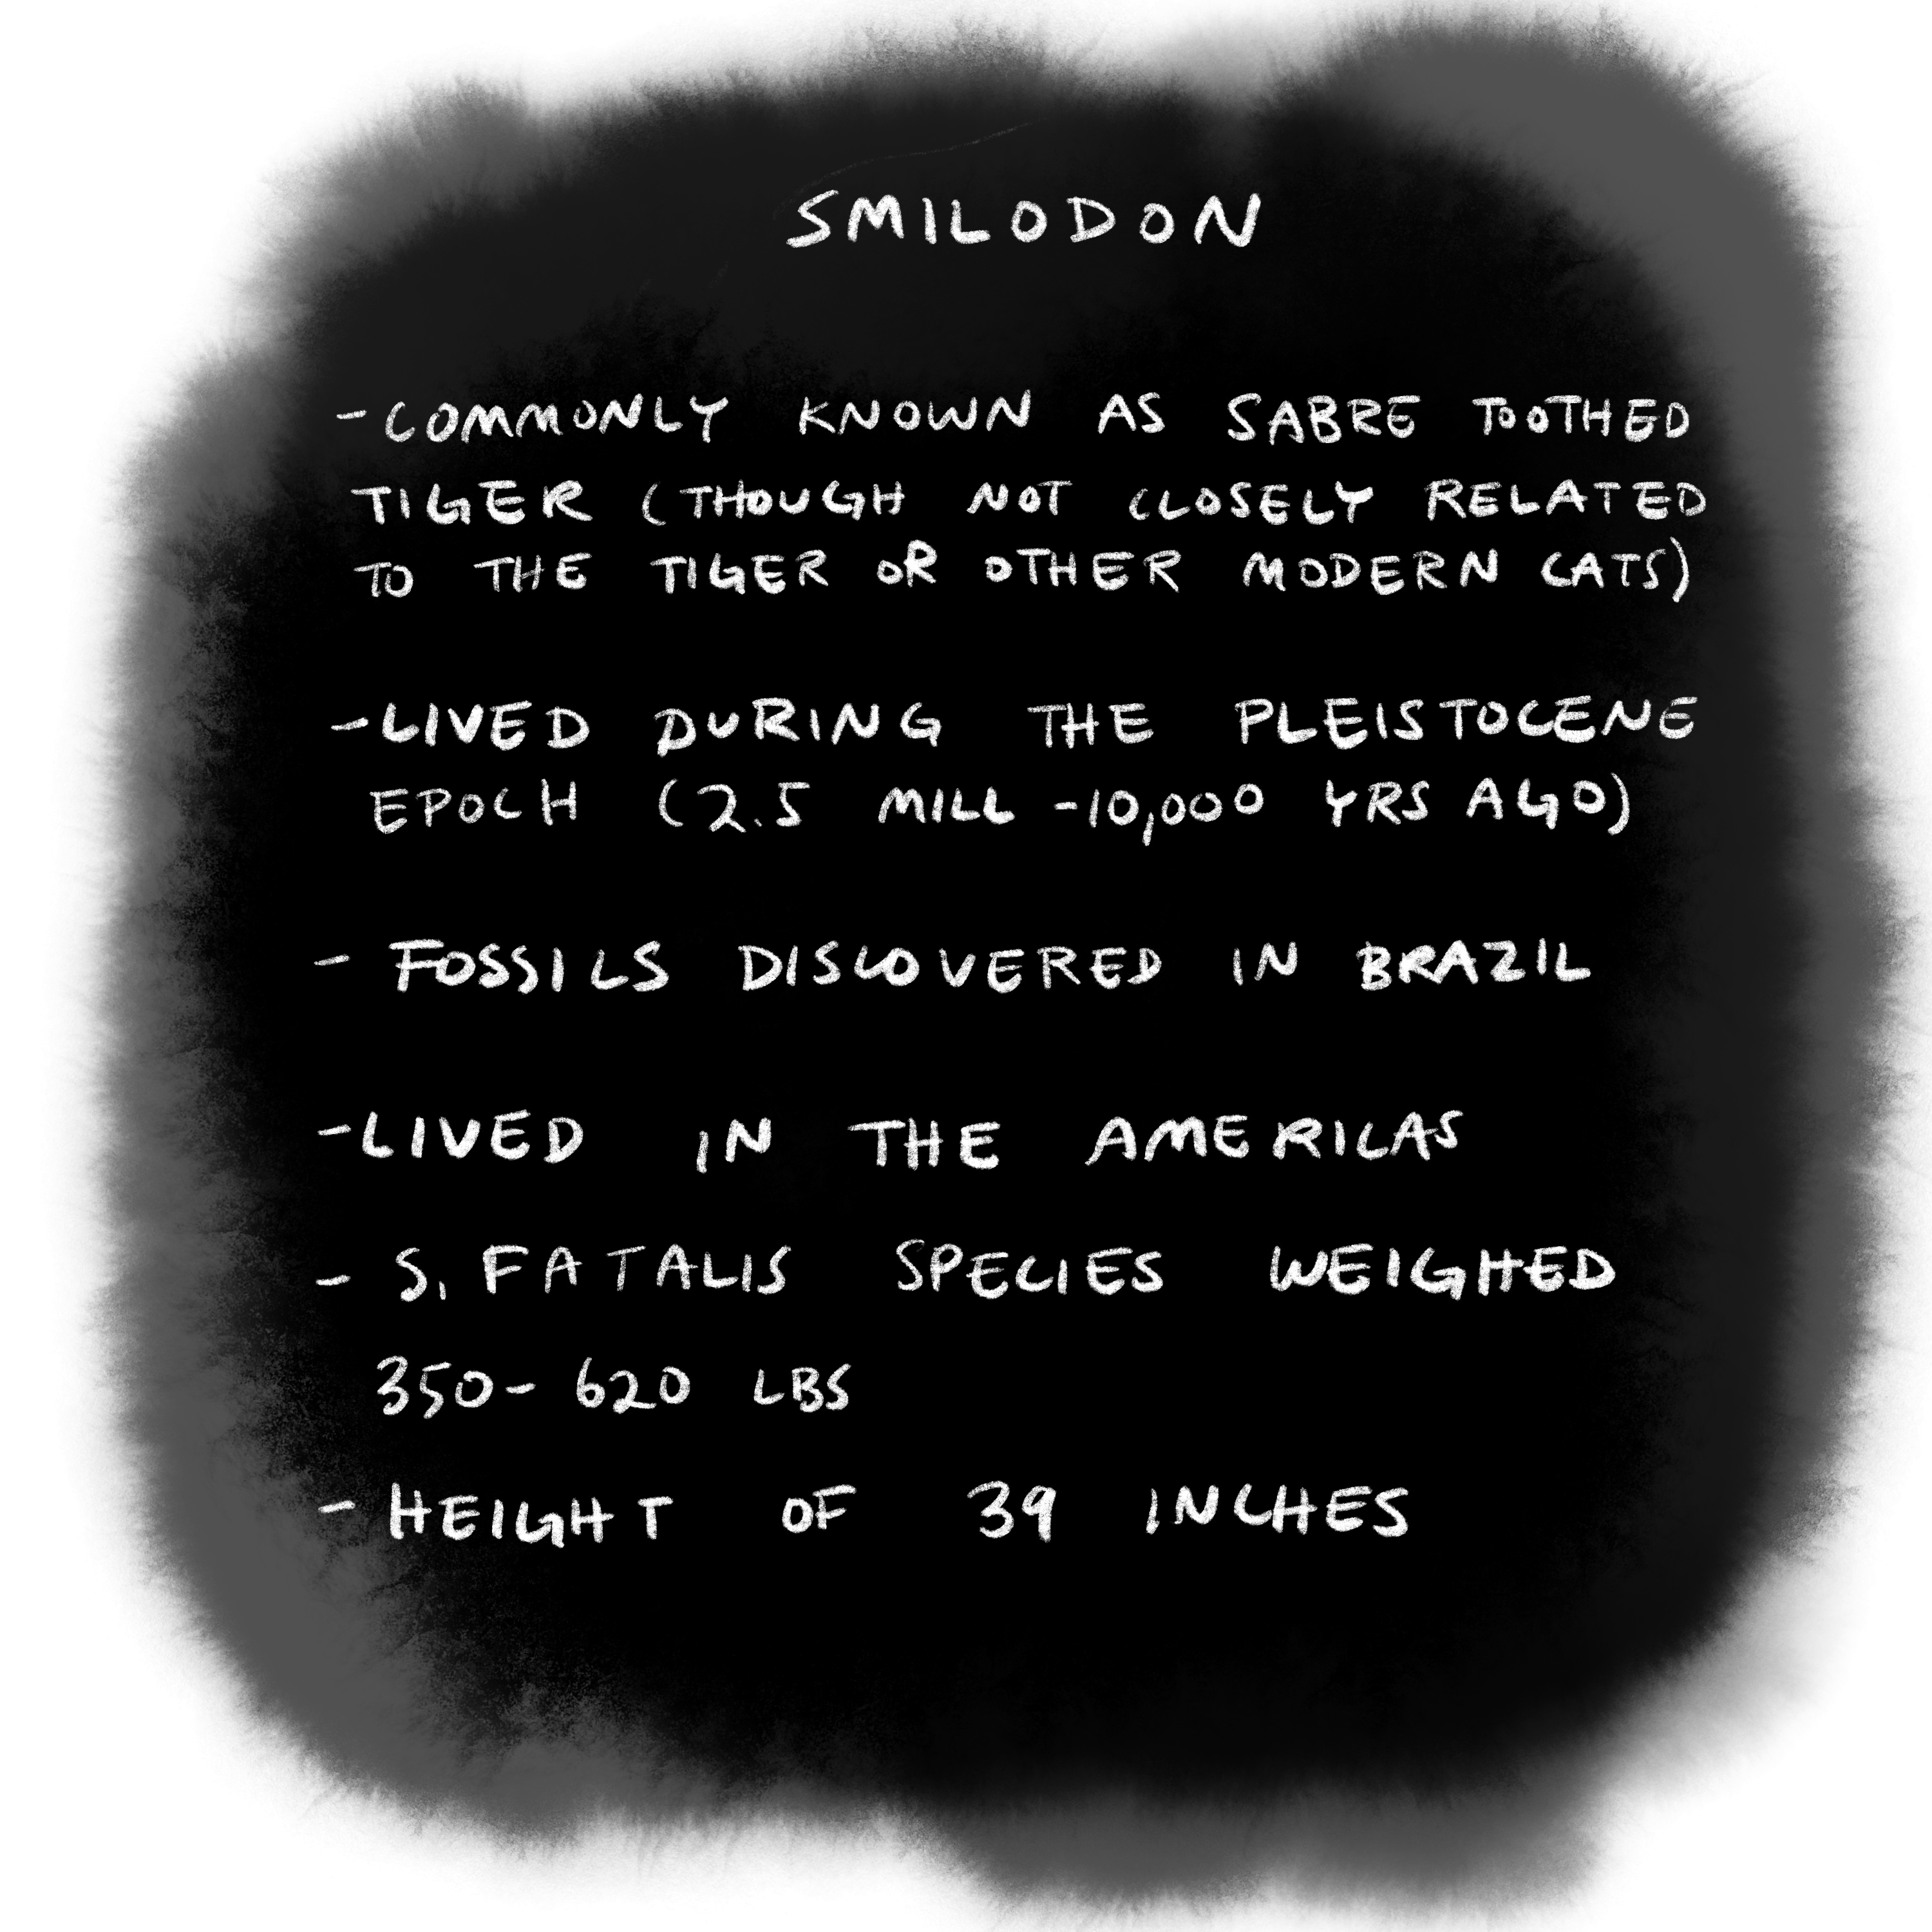 SMILODON
- COMMONLY KNOWN AS SABRE TOOTHED
TIGER (THOUGH NOT CLOSELY RELATED
TO THE TIGER OR OTHER MODERN CATS)
- LIVED DURING THE PLEISTOCENE
EPOCH (2.5 MILL - 10,000 YRS AGO)
- FOSSILS DISCOVERED IN BRAZIL
- LIVED IN THE AMERICAS
- S. FATALIS SPECIES WEIGHED
350 - 620 LBS
- HEIGHT OF 39 INCHES